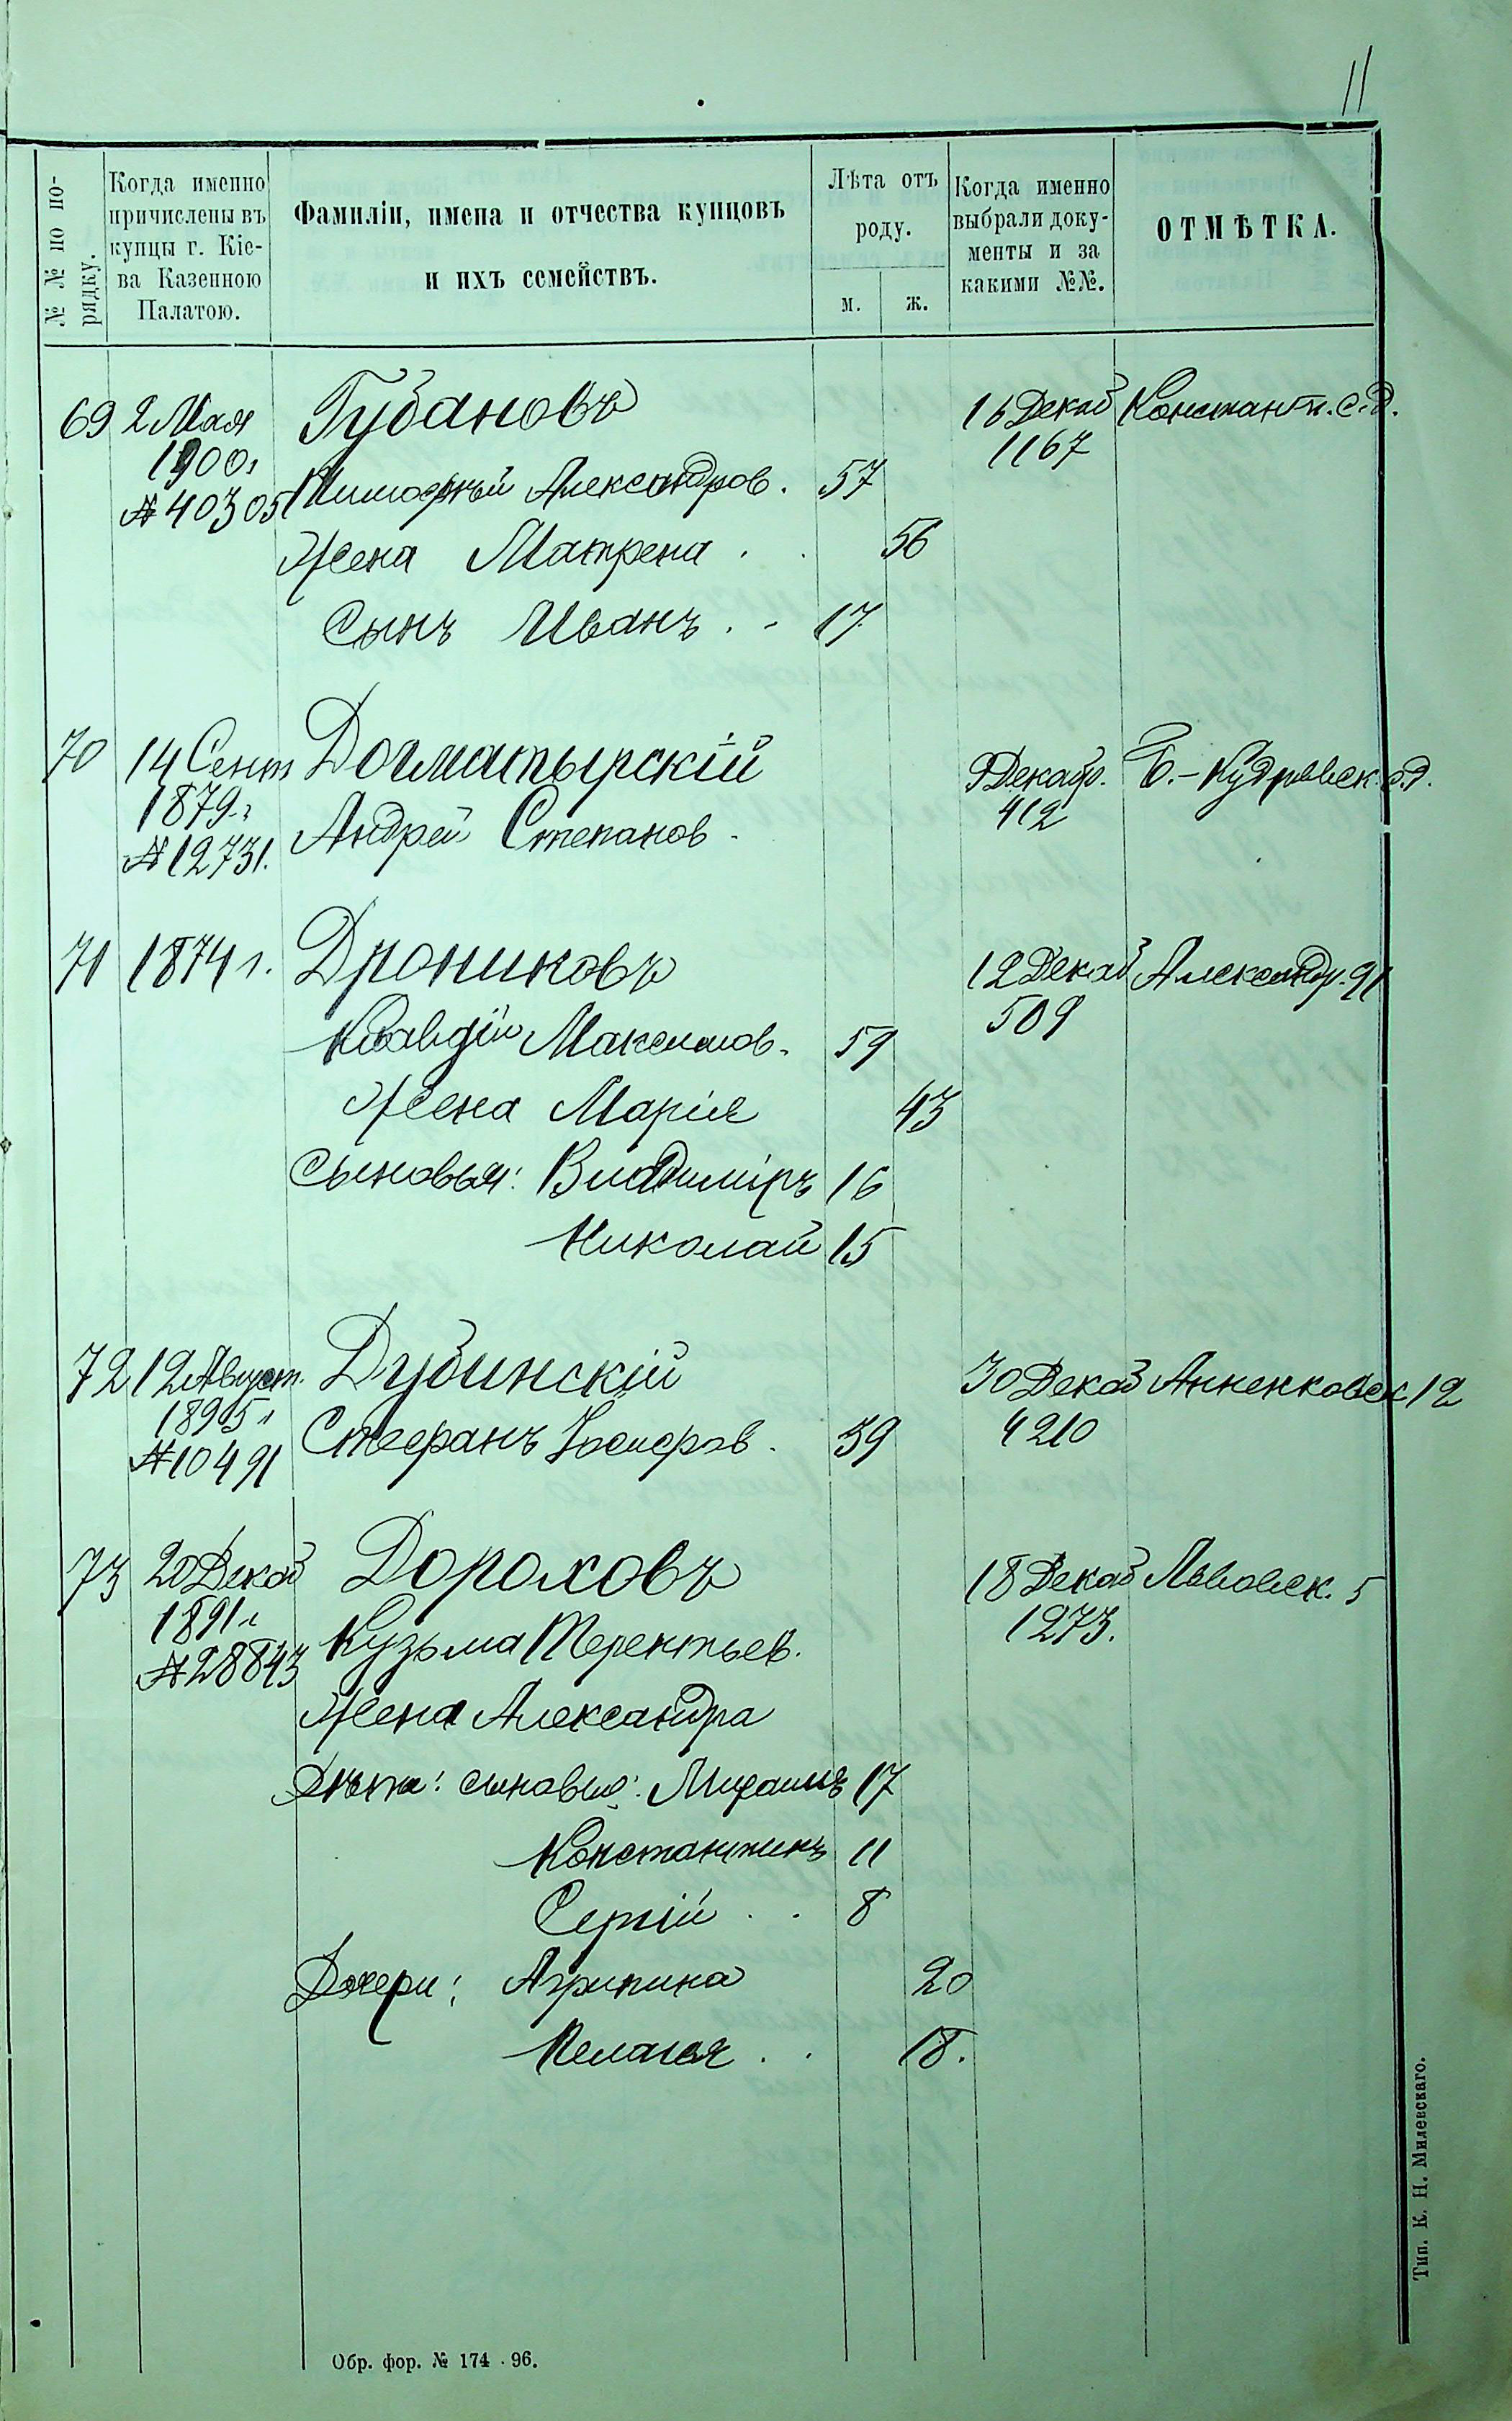 11
№ № по по-
рядку.
Когда именно
причислены въ
купцы г. Кіе-
ва Казенною
Палатою.
Фамиліи, имена и отчества купцовъ
и ихъ семействъ.
Лѣта отъ
роду.
м.
ж.
Когда именно
выбрали доку-
менты и за
какими №№.
ОТМѢТКА.
69 2 Мая Губановъ 16 Декаб Константн. с. д.
1900 г 1167
№ 40305 Тимофѣй Александров. 57
Жена Матрена . . 56
Сынъ Иванъ . - 17
70 14 Сент Догматырскій 9 Декабр. Б.-Кудрявск. с.д.
1879 г 412
№ 12731. Андрей Степанов.
71 1874 г. Дрониковъ 12 Декаб Александр. 91
509
Клавдій Максимов. 59
Жена Марія 43
Сыновья: Владиміръ 16
Николай 15
72 12 Август. Дубинскій 30 Декаб Анненковск 12
1895 г 4210
№ 10491 Стефанъ Іосифов. 39
73 20 Декаб Дороховъ 18 Декаб Львовск. 5
1891 г 1273.
№ 28843 Кузьма Терентьев.
Жена Александра
Дѣти: сыновья: Михаилъ 17
Константинъ 11
Сергій . . 8
Дочери: Агрипина 20
Пелагея . . 18.
Обр. фор. № 174 - 96.
Тип. К. Н. Милевскаго.